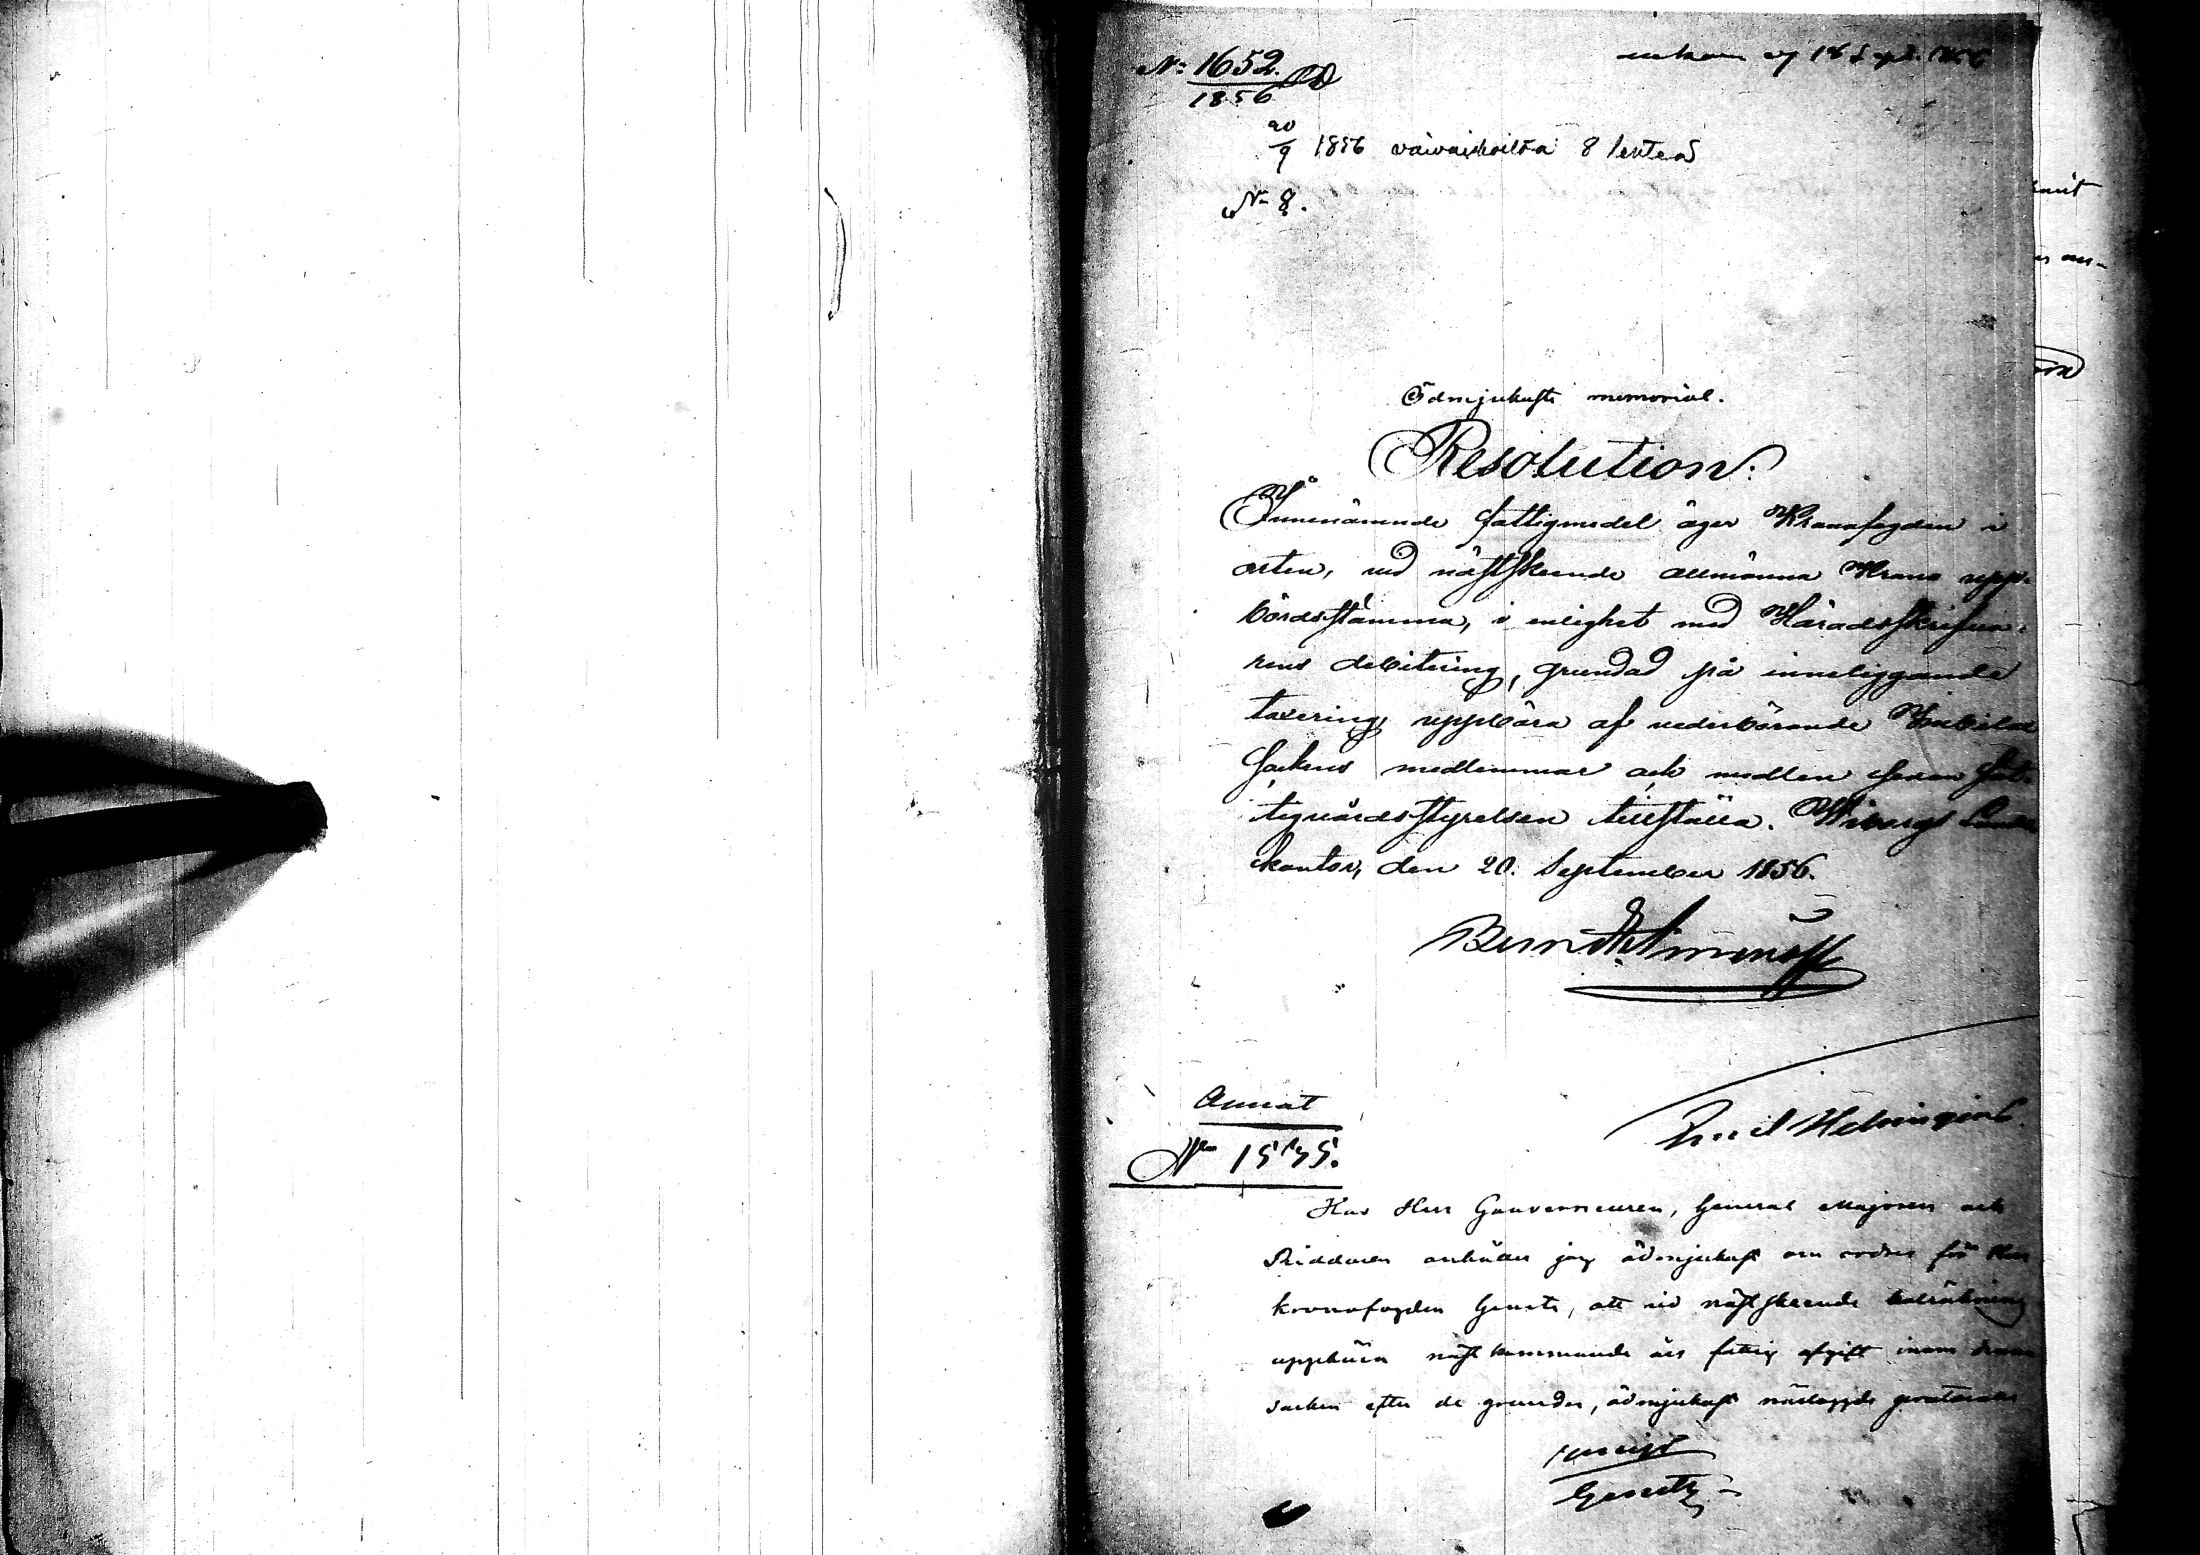 No: 1652.
1856
inkom 18 Sept. 1856
20/9 1856 vaivaishoilta 8
No 8.
Ödmjukaste memorial.
Resolution.
Innenämnde fattigmedel äger Kronofogden i
orten, vid nästskeende allmänna Krono upp-
bördsstämma, i enlighet med Häradsskrifva-
rens debitering, grundad på inneliggande
taxering uppbära af vederbörande
Sockens medlemmar och medlen sedan fat-
tigvårdsstyrelsen tillställa. Wiborgs Lands
kontor, den 20. September 1856.
Annat
No 1535.
Emil Helsingius.
Hos Herr Gouverneuren, General Majoren och
Riddaren anhåller jag ödmjukast om order för Herr
kronofogden Genetz, att vid nästskeende
uppbära nästkommande års fattig afgift inom denna
socken efter de grunder, ödmjukast närlagde protocoll
Genetz